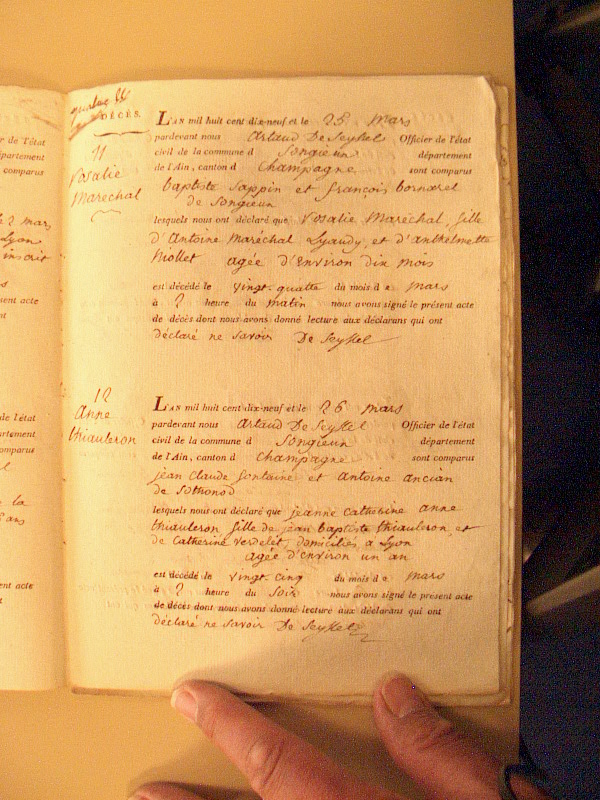 DÉCÈS.
11
Rosalie
Marechal
L'AN mil huit cent dix-neuf et le 25 mars
pardevant nous Artaud De Seyssel Officier de l'état
civil de la commune d Songieun département
de l'Ain, canton d Champagne sont comparus
baptiste Sappin et françois bornarel
de Songieun
lesquels nous ont déclaré que Rosalie Maréchal, fille
d'Antoine Maréchal Lyaudy, et d'anthelmette
Mollet agée d'environ dix mois
est décédé le vingt-quatre du mois de mars
à 7 heure du matin nous avons signé le présent acte
de décès dont nous avons donné lecture aux déclarans qui ont
déclaré ne savoir De Seyssel
12
Anne
thiauleron
L'AN mil huit cent dix-neuf et le 26 mars
pardevant nous Artaud De Seyssel Officier de l'état
civil de la commune d Songieun département
de l'Ain, canton d Champagne sont comparus
jean Claude fontaine et Antoine ancian
de Sothonod
lesquels nous ont déclaré que jeanne Catherine anne
thiauleron fille de jean baptiste thiauleron, et
de Catherine Verdelet, domiciliés a Lyon
agée d'environ un an
est décédé le vingt cinq du mois de mars
à 7 heure du soir nous avons signé le présent acte
de décès dont nous avons donné lecture aux déclarans qui ont
déclaré ne savoir De Seyssel